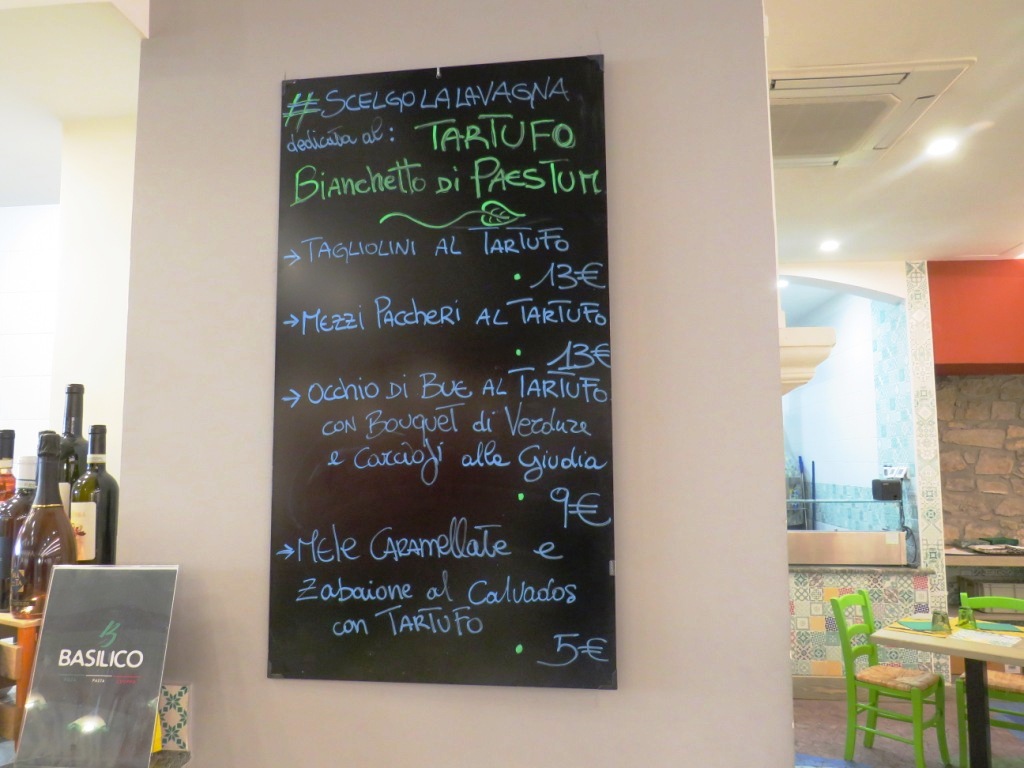 #SCELGOLALAVAGNA
dedicata al: TARTUFO
Bianchetto di PAESTUM
→TAGLIOLINI AL TARTUFO
• 13€
→MEZZI PACCHERI AL TARTUFO
• 13€
→OCCHIO DI BUE AL TARTUFO
CON BOUQUET di Verdure
e Carciofi alla Giudia
• 9€
→MELE CARAMELLATE e
Zabaione al Calvados
con TARTUFO
• 5€
BASILICO
PASTA